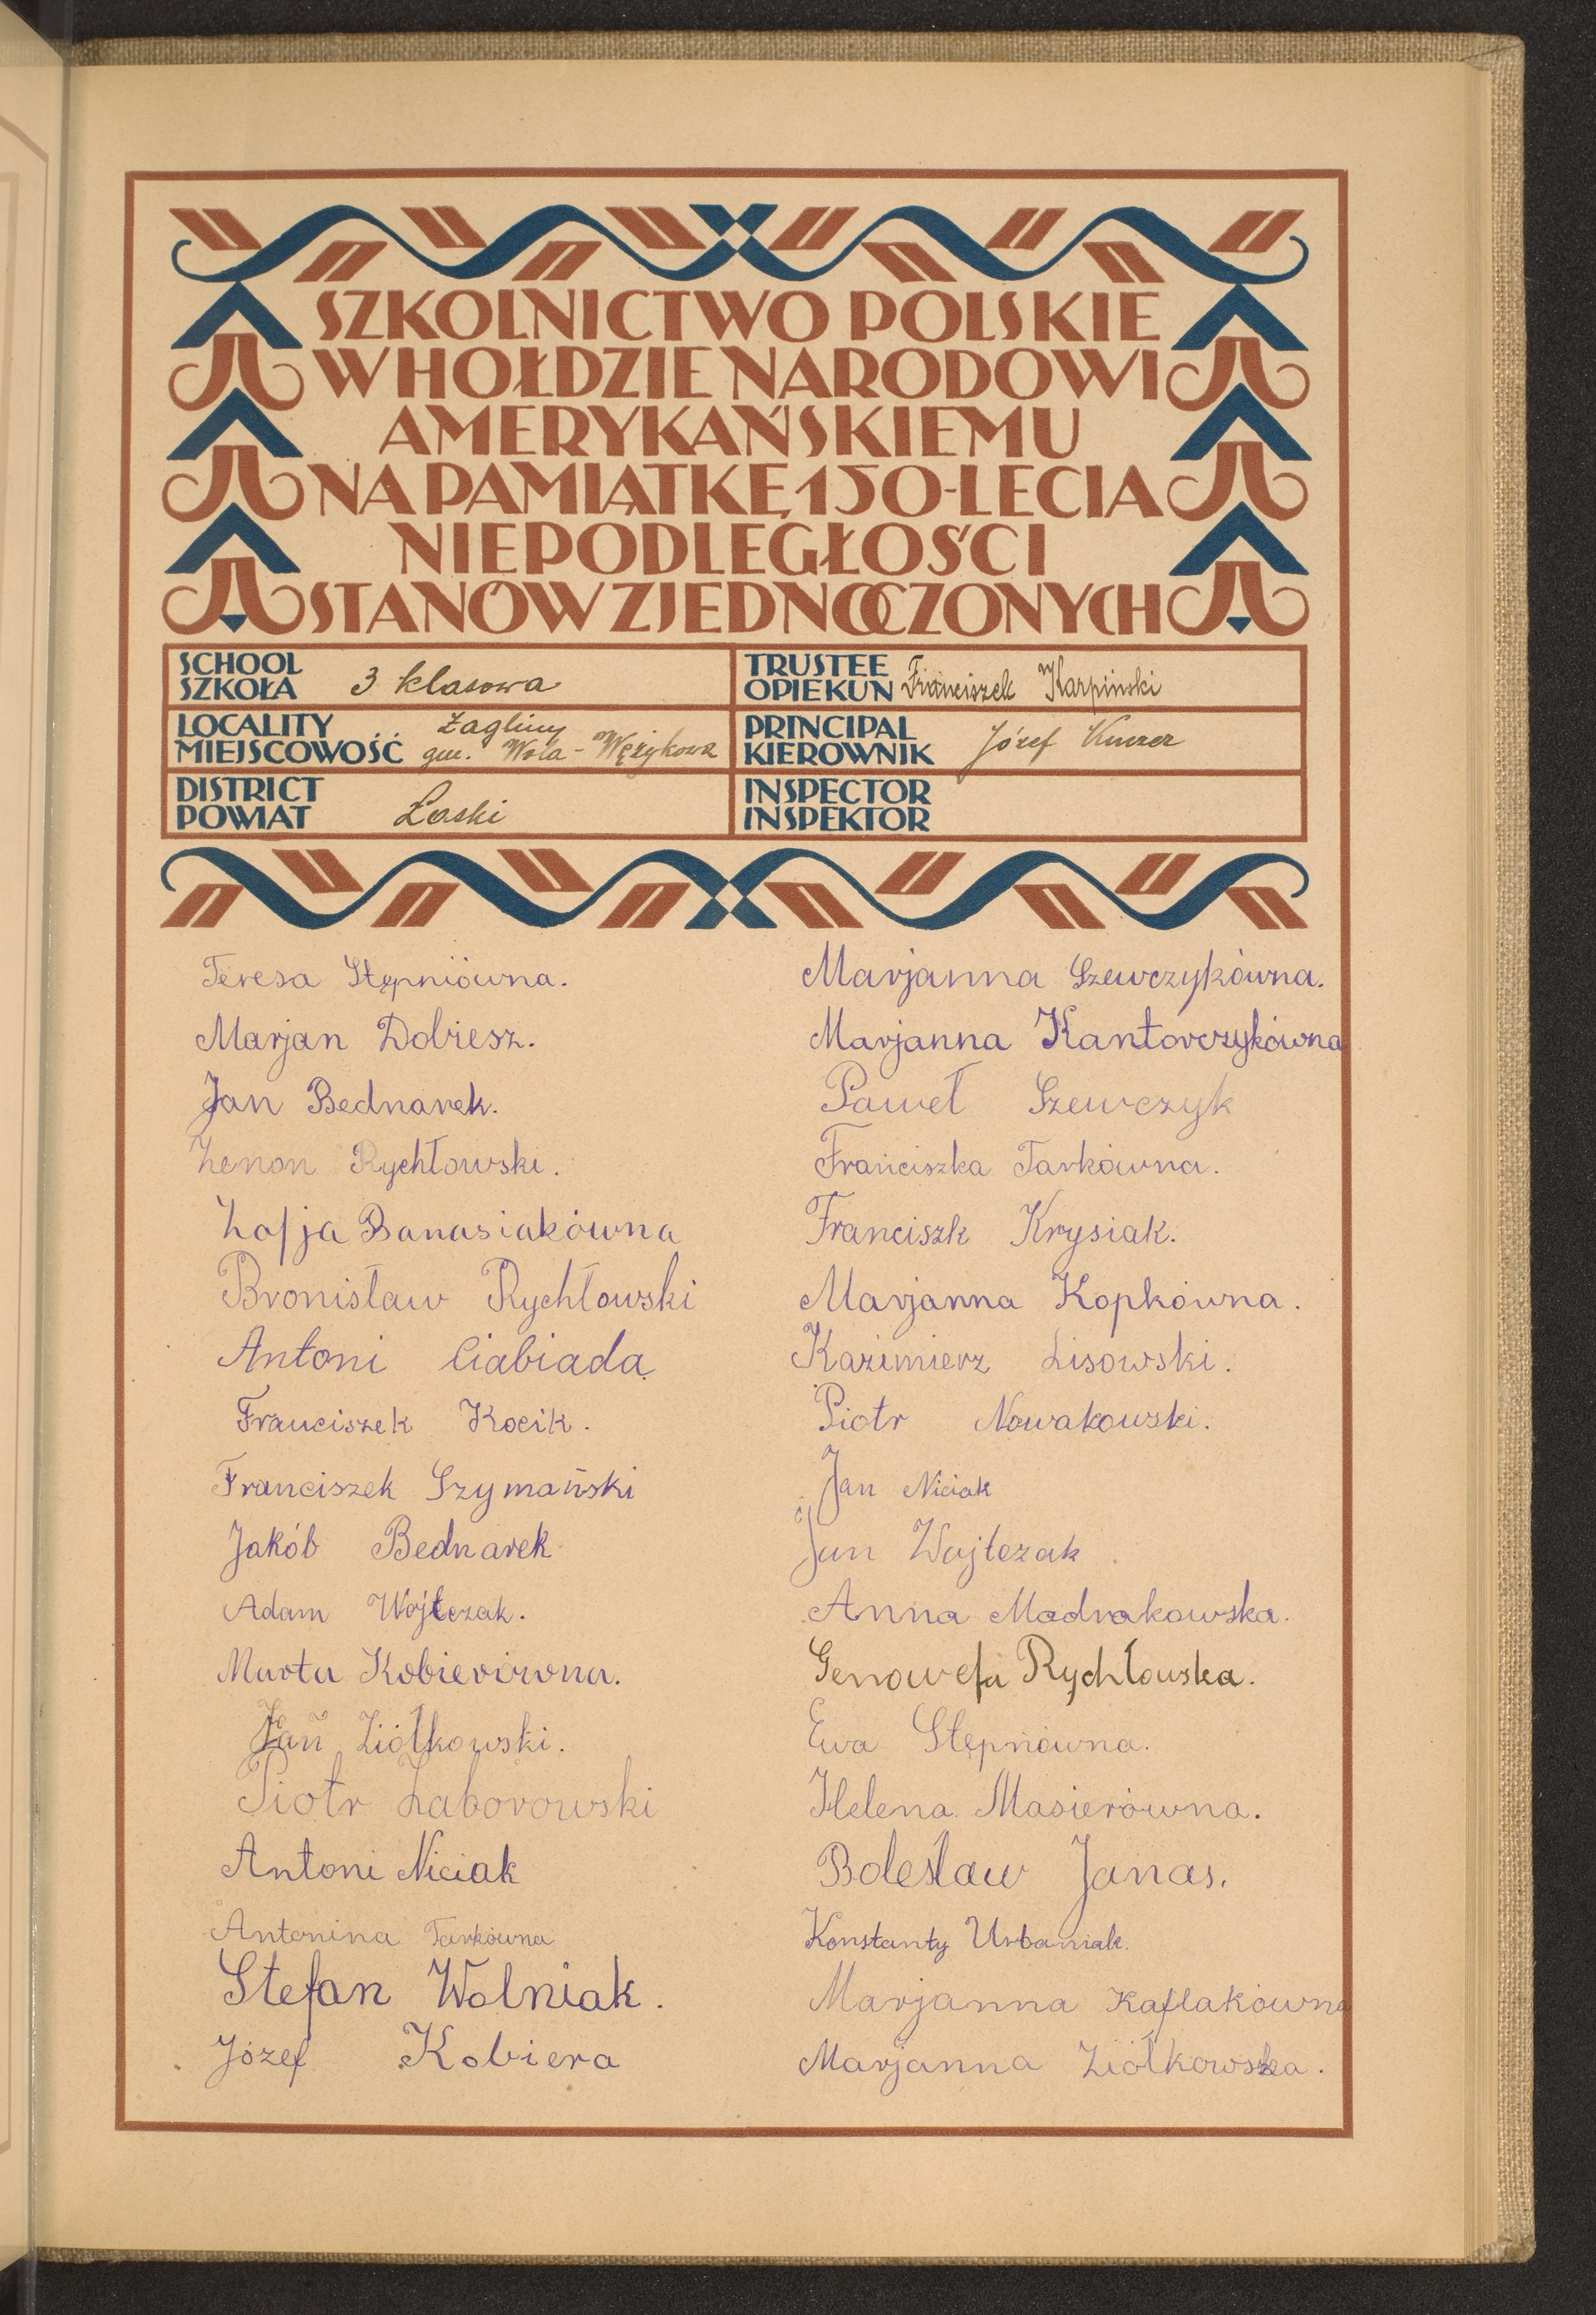 SZKOLNICTWO POLSKIE
W HOŁDZIE NARODOWI
AMERYKAŃSKIEMU
NA PAMIĄTKĘ 150-LECIA
NIEPODLEGŁOŚCI
STANÓW ZJEDNOCZONYCH
SCHOOL
SZKOŁA 3 klasowa
TRUSTEE
OPIEKUN Franciszek Karpinski
LOCALITY
MIEJSCOWOŚĆ Żagliny
gm. Wola-Wężykowa
PRINCIPAL
KIEROWNIK Józef
DISTRICT
POWIAT Łaski
INSPECTOR
INSPEKTOR
Teresa Stępniówna.
Marjan Dobiesz.
Jan Bednarek.
Zenon Rychłowski.
Zofja Banasiakówna
Bronisław Rychłowski
Antoni Ciabiada
Franciszek Kocik.
Franciszek Szymański
Jakób Bednarek
Adam Wojtczak.
Marta Kobierówna.
Jan Ziółkowski.
Piotr Zaborowski
Antoni Niciak
Antonina Tarkówna
Stefan Wolniak.
Józef Kobiera
Marjanna Szewczykówna.
Marjanna Kantorczykówna
Paweł Szewczyk
Franciszka Tarkówna.
Franciszk Krysiak.
Marjanna Kopkówna.
Kazimierz Lisowski.
Piotr Nowakowski.
Jan Niciak
Jan Wojtczak
Anna Modrakowska.
Genowefa Rychłowska.
Ewa Stępniówna.
Helena Masierówna.
Bolesław Janas.
Konstanty Urbaniak.
Marjanna Kaflakówna
Marjanna Ziółkowska.